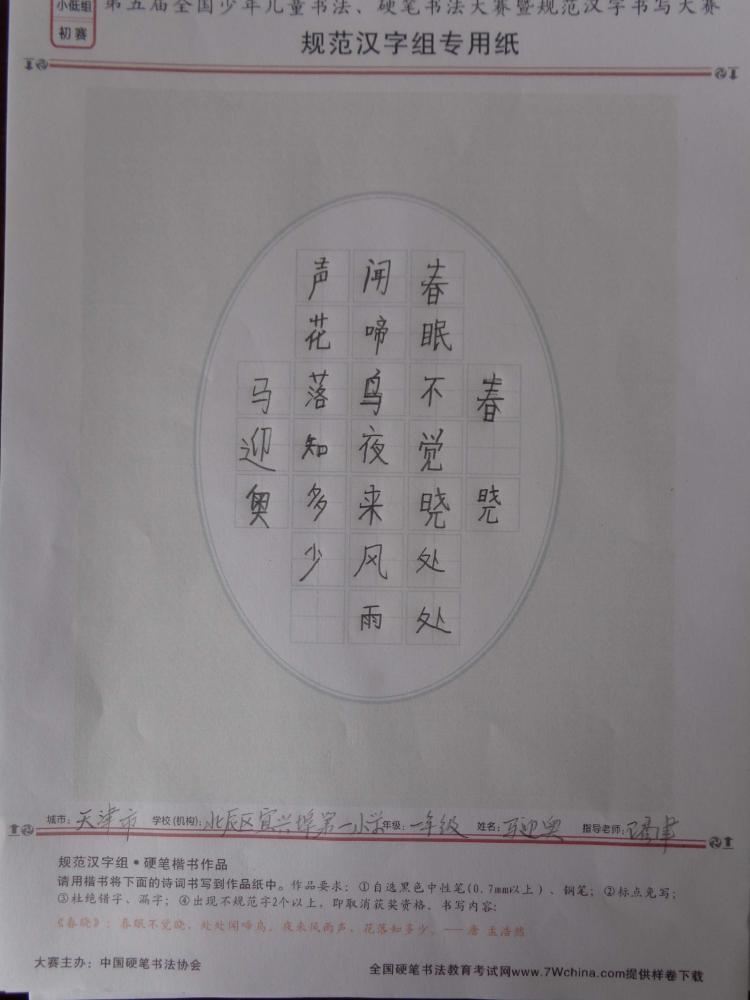 小低组
初赛
第五届全国少年儿童书法、硬笔书法大赛暨规范汉字书写大赛
规范汉字组专用纸
春晓
春眠不觉晓处处
闻啼鸟夜来风雨
声花落知多少
马迎奥
城市：天津市 学校(机构)：北辰区宜兴埠第一小学 年级：一年级 姓名：马迎奥 指导老师：
规范汉字组•硬笔楷书作品
请用楷书将下面的诗词书写到作品纸中。作品要求：①自选黑色中性笔(0.7mm以上)、钢笔；②标点免写；
③杜绝错字、漏字；④出现不规范字2个以上，即取消获奖资格。书写内容：
《春晓》：春眠不觉晓，处处闻啼鸟。夜来风雨声，花落知多少。——唐 孟浩然
大赛主办：中国硬笔书法协会
全国硬笔书法教育考试网www.7Wchina.com提供样卷下载